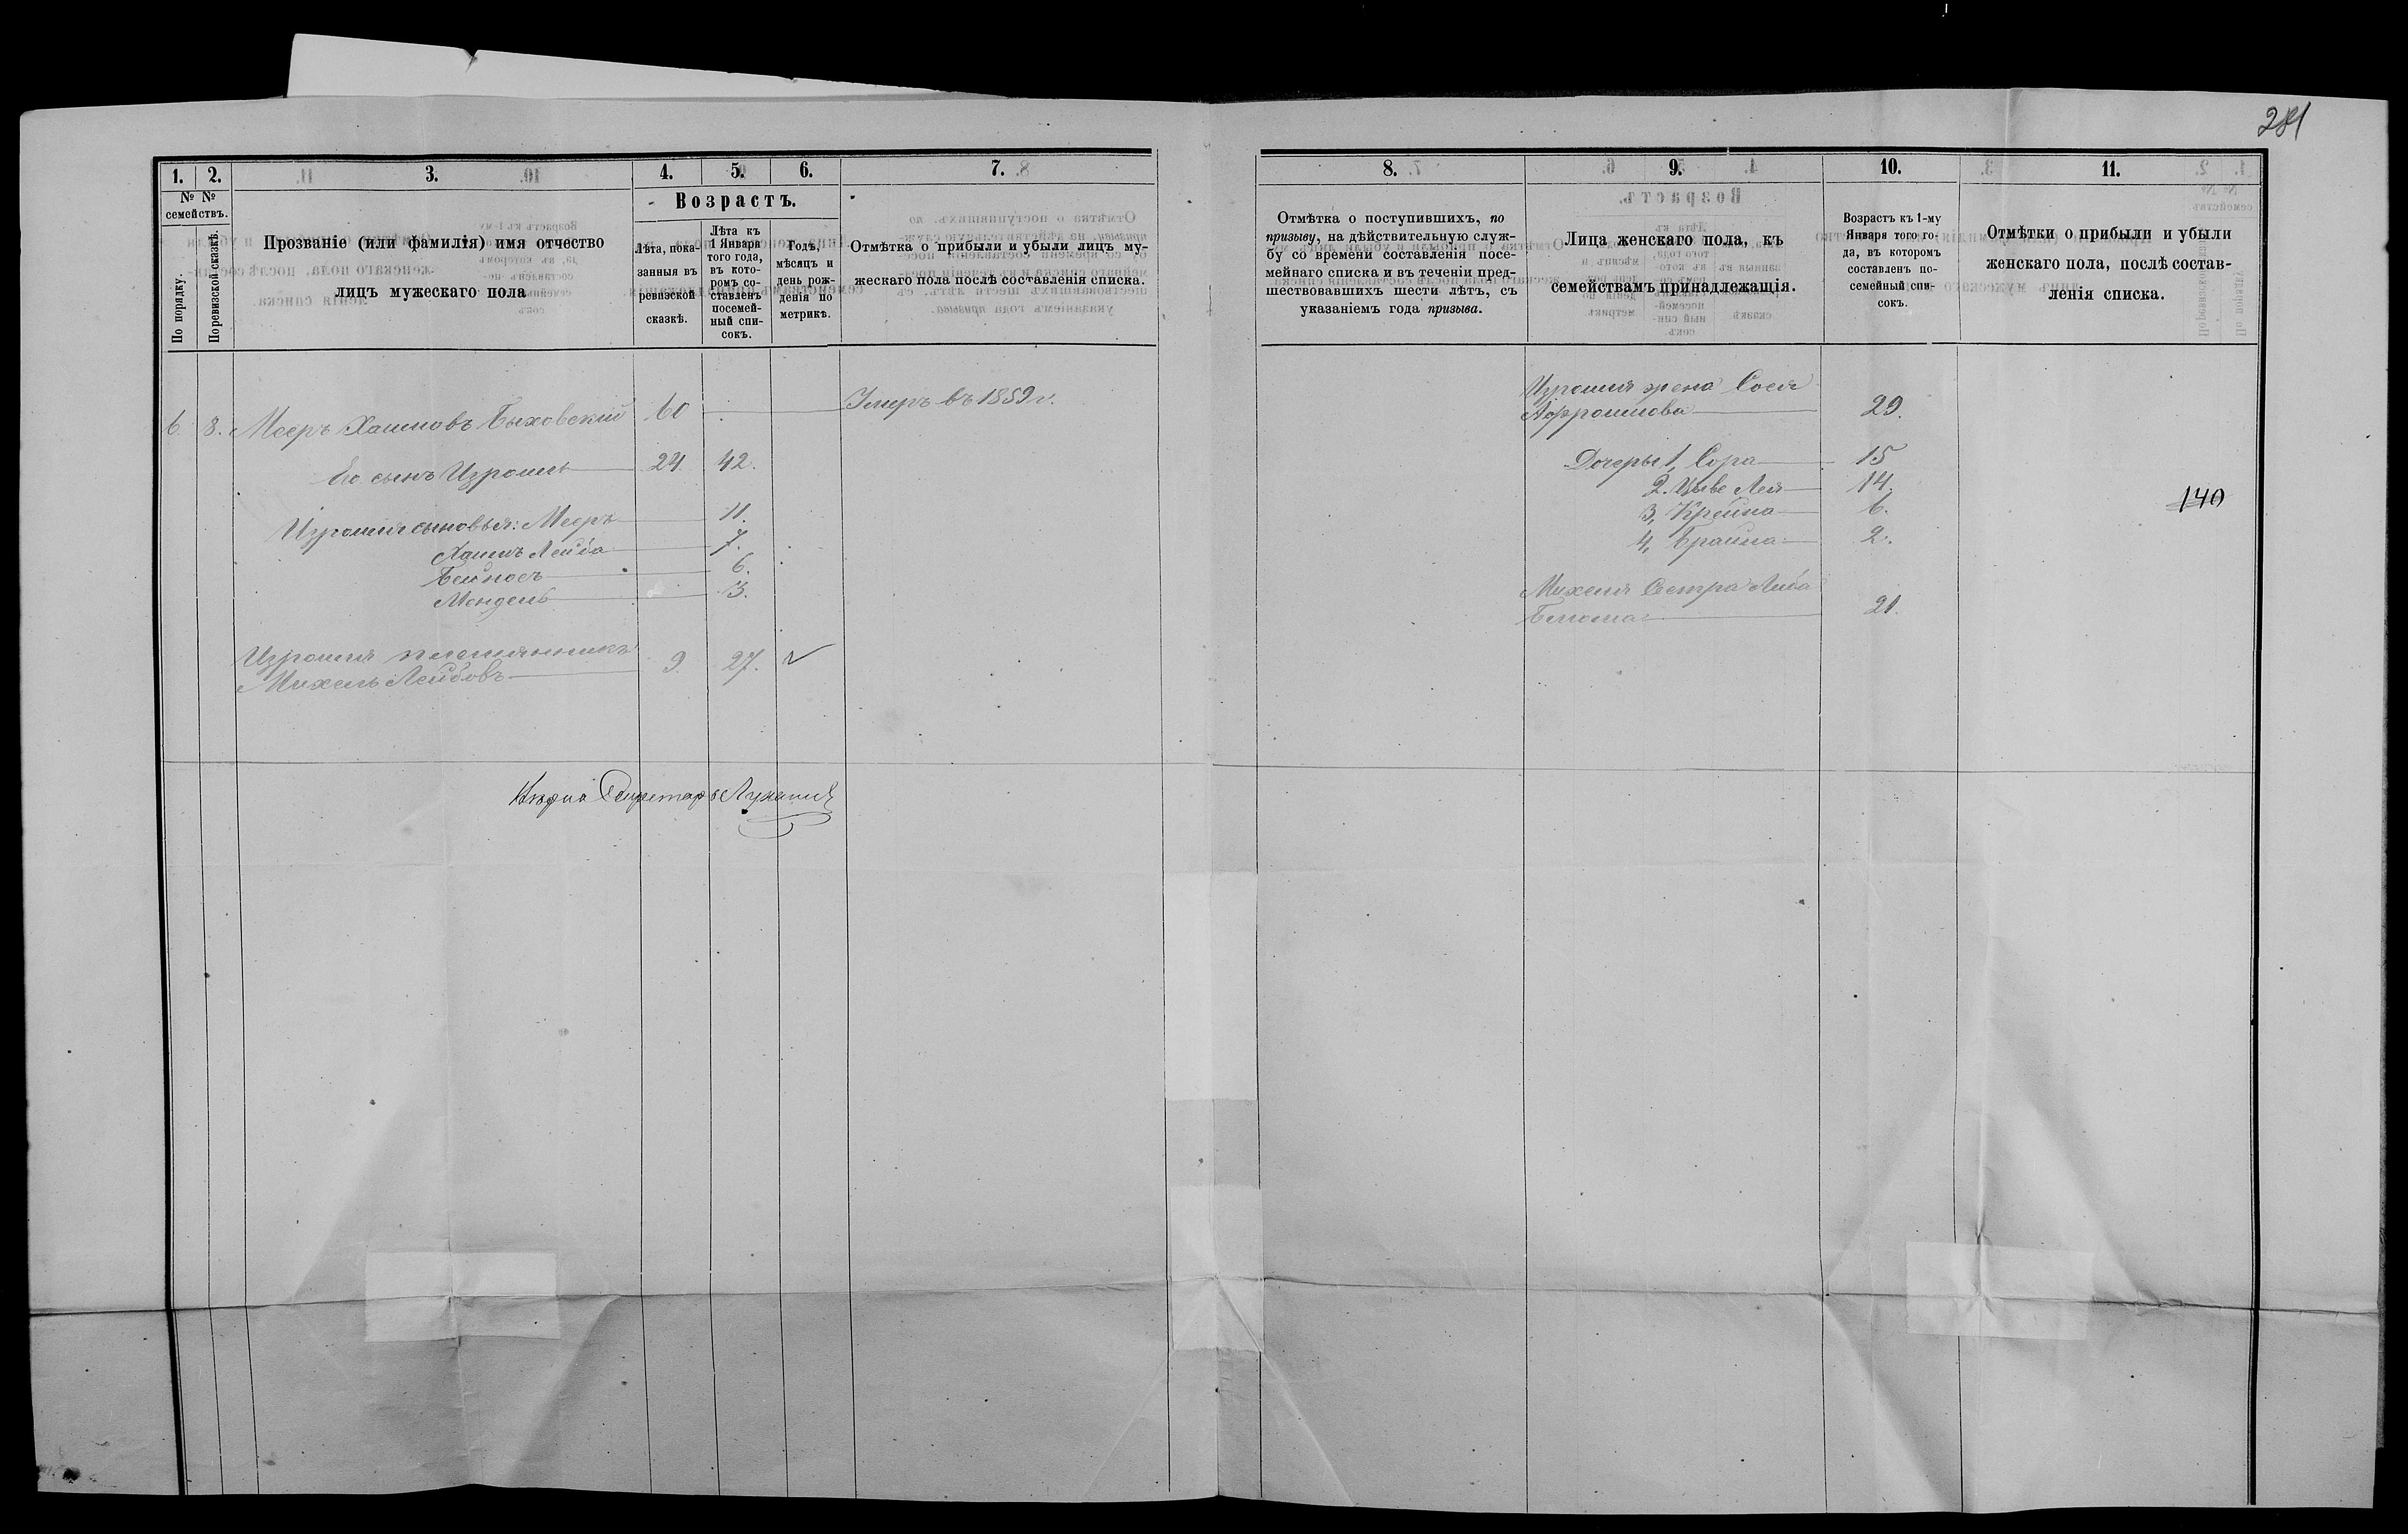 281
1. 2. 3. 4. 5. 6. 7.
№ № семействъ.
По порядку.
По ревизской сказкѣ.
Прозваніе (или фамилія) имя отчество
лицъ мужескаго пола
Возрастъ.
Лѣта, пока-
занныя въ
ревизской
сказкѣ.
Лѣта къ
1 Января
того года,
въ кото-
ромъ со-
ставленъ
посемей-
ный спи-
сокъ.
Годъ,
мѣсяцъ и
день рож-
денія по
метрикѣ.
Отмѣтка о прибыли и убыли лицъ му-
жескаго пола послѣ составленія списка.
6. 8. Мееръ Хаимовъ Быховскій 60 Умеръ въ 1859 г.
Его сынъ Изроиль 24. 42.
Изроиля сыновья: Мееръ 11.
Хаимъ Лейба 7.
Бейносъ 6.
Мендель 3.
Изроиля племянникъ
Михель Лейбовъ 9. 27.
Секретарь
8. 9. 10. 11.
Отмѣтка о поступившихъ, по
призыву, на дѣйствительную служ-
бу со времени составленія посе-
мейнаго списка и въ теченіи пред-
шествовавшихъ шести лѣтъ, съ
указаніемъ года призыва.
Лица женскаго пола, къ
семействамъ принадлежащія.
Возрастъ къ 1-му
Января того го-
да, въ которомъ
составленъ по-
семейный спи-
сокъ.
Отмѣтки о прибыли и убыли
женскаго пола, послѣ состав-
ленія списка.
Изроиля жена Сося
Афроимова 29.
Дочери 1, Сора 15
2. Цыве Лея 14.
3, Крейна 6.
4, Брайна 2.
140
Михеля Сестра Либа
21.